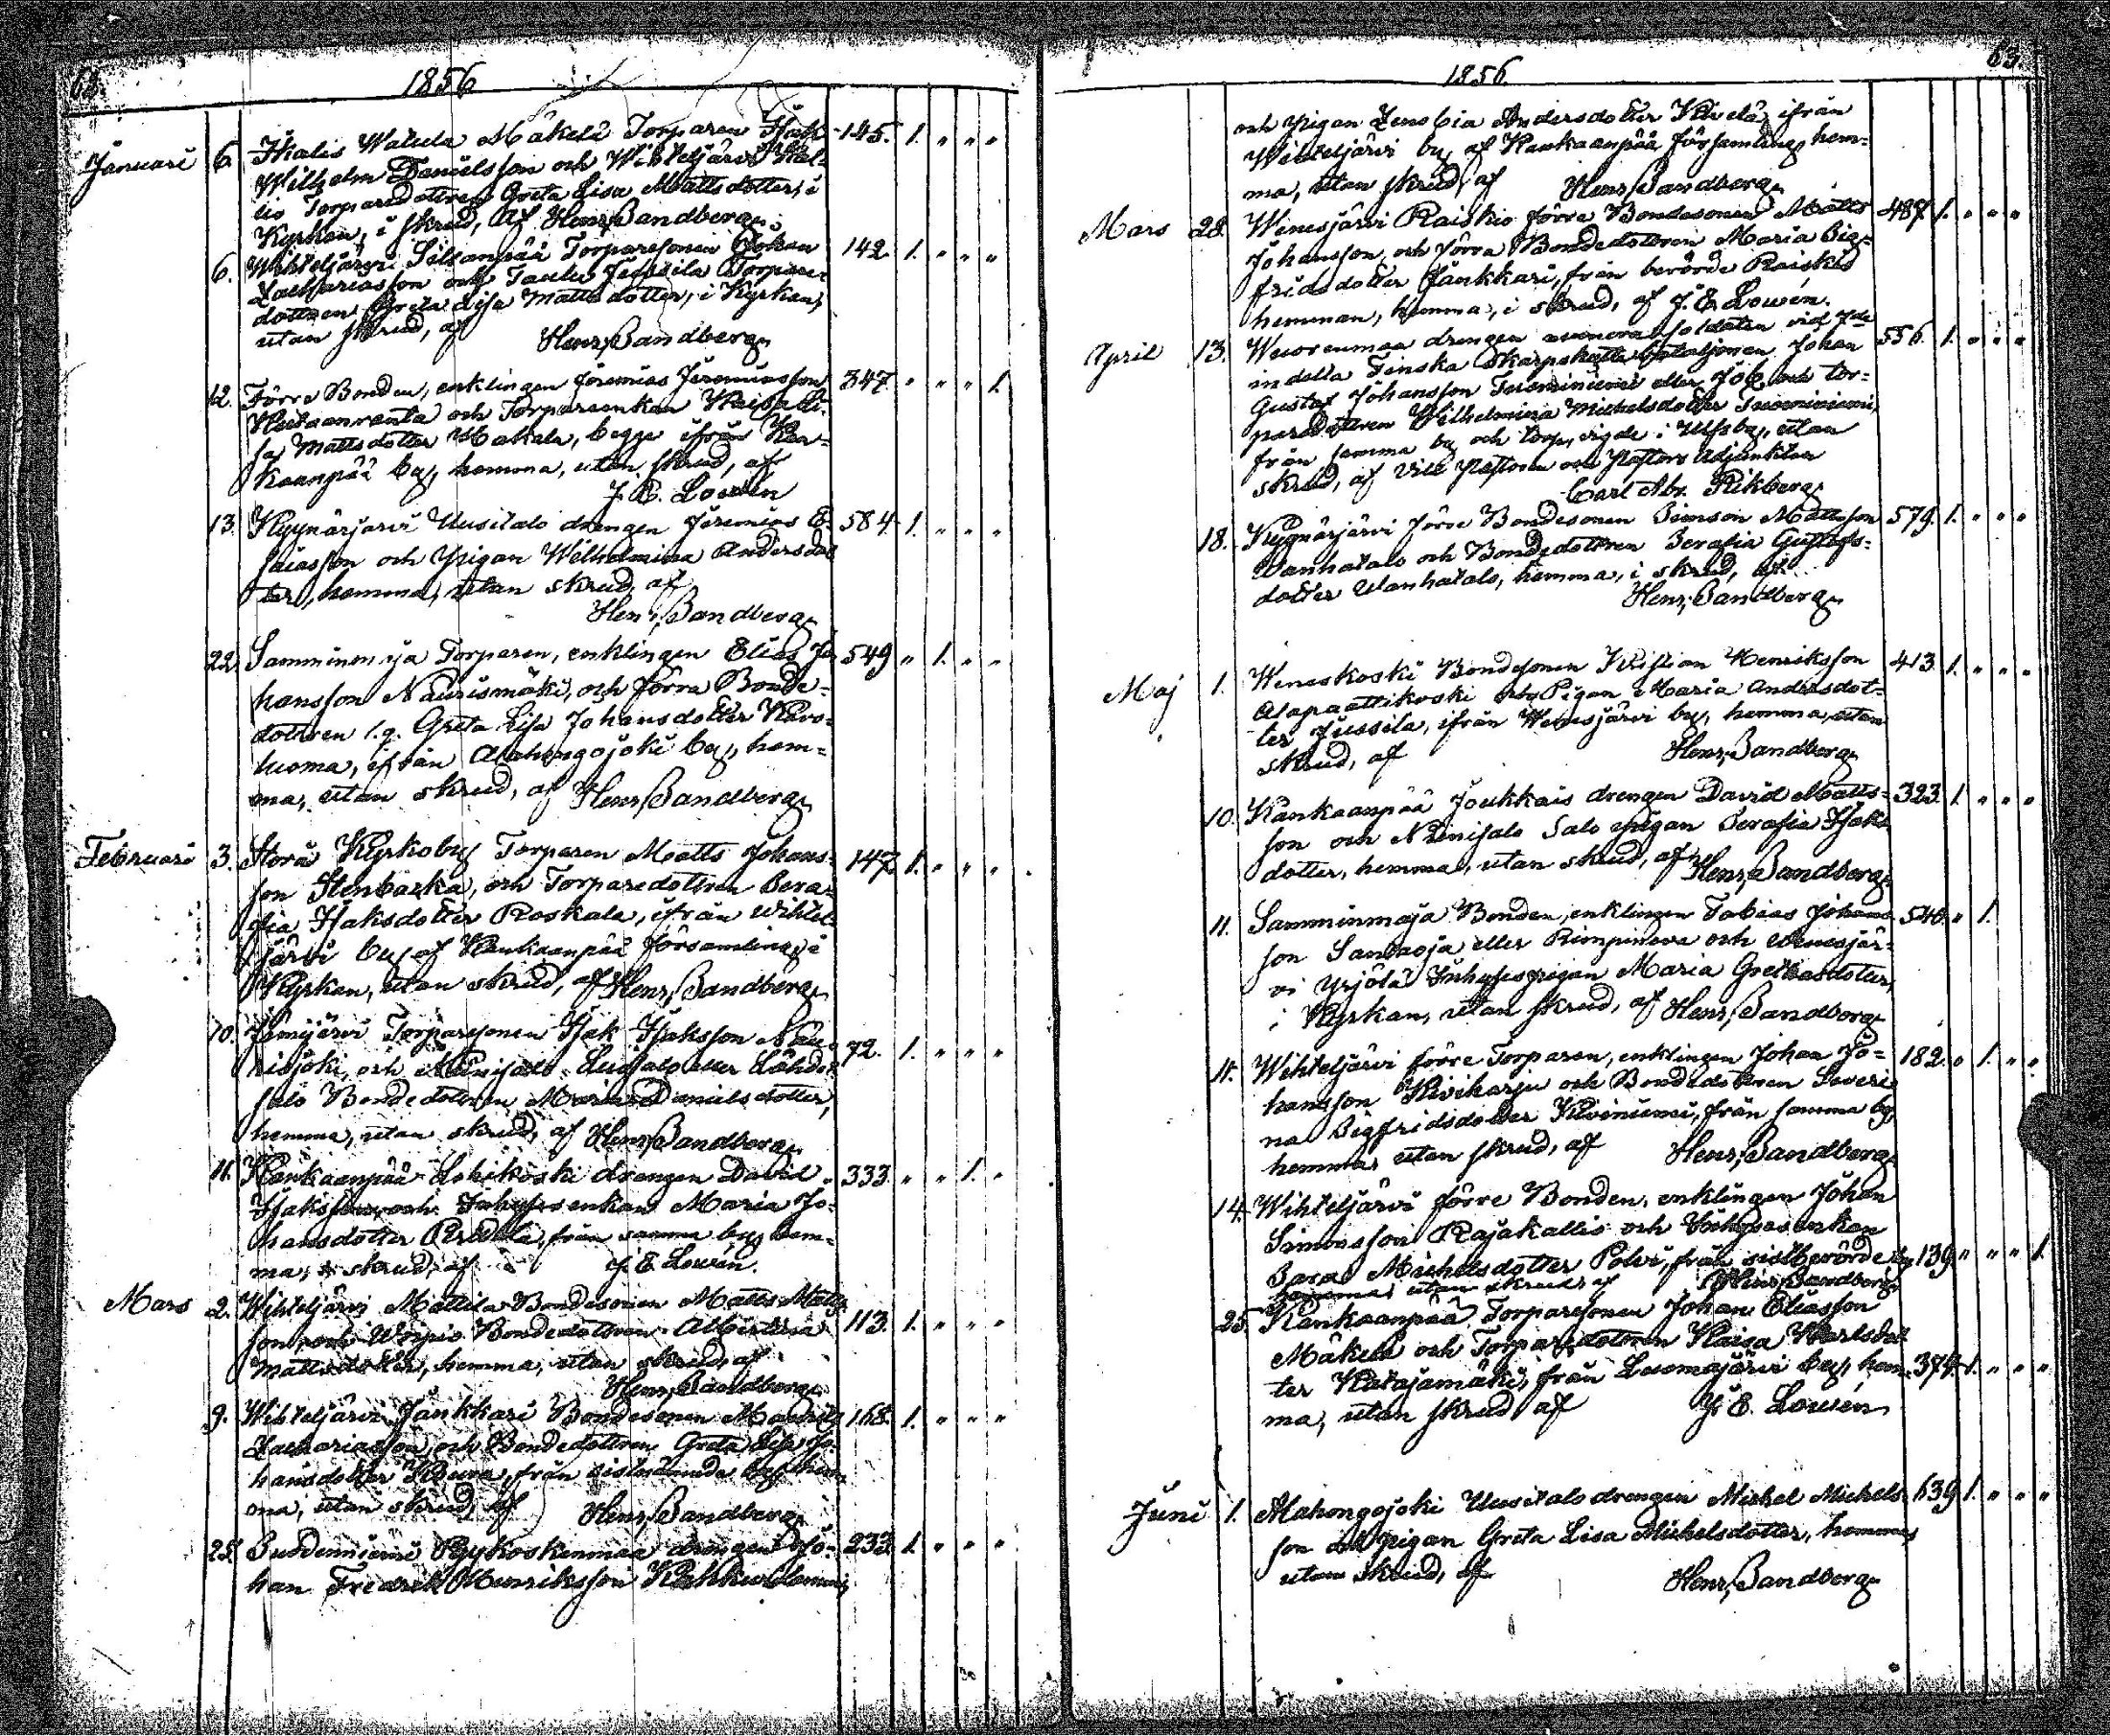 62.
1856
Januari 6. Ikalis Watula Mäkelä Torparen Isak 145. 1. " " "
Wilhelm Danielsson och Wihteljärvi
Torparedottren Greta Lisa Mattsdotter, i
Kyrkan, i skrud, af Henr. Sandberg.
6. Wihteljärvi Sillanpää Torparesonen Johan 142. 1. " " "
Zachariasson och Taulu Jussila Torpare-
dottren Greta Lisa Mattsdotter, i Kyrkan,
utan skrud, af Henr. Sandberg.
12. Förre Bonden, enklingen Jeremias Jeremiasson 347. " " " 1.
Hietaanranta och Torpareenkan Kaisa Li-
sa Mattsdotter Makala, begge ifrån Kan-
kaanpää by, hemma, utan skrud, af
J. E. Lowén
13. Kyynärjärvi Uusitalo drengen Jeremias E- 584. 1. " " "
saiasson och pigan Wilhelmina Andersdot
ter, hemma, utan skrud, af
Henr. Sandberg
22. Samminmaja Torparen, enklingen Elias Jo 549 " 1. " "
hansson Naurismäki, och förra Bonde-
dottren s.q. Greta Lisa Johansdotter Karo-
luoma, ifrån Alahongojoki by, hem-
ma, utan skrud, af Henr. Sandberg
Februari 3. Storå Kyrkoby Torparen Matts Johans- 147. 1. " " "
son Stenbacka, och Torparedottren Sera-
fia Isaksdotter Roskala, ifrån Wihtel-
järvi by af Kankaanpää församling, i
Kyrkan, utan skrud, af Henr. Sandberg
10. Jämijärvi Torparesonen Isak Isaksson Nau- 72. 1. " " "
risjoki, och Niinisalo Lusasalo eller Lähde
salo Bondedottren Maria Danielsdotter,
hemma, utan skrud, af Henr. Sandberg
11. Kankaanpää Lohikoski drengen David 333 " " 1. "
Isaksson, och Inhysesenkan Maria Jo-
hansdotter Perdola, från samma by, hem-
ma, i skrud, af J. E. Lowén.
Mars 2. Wihteljärvi Mattila Bondesonen Matts Matts 113. 1. " " "
son, och Worpio Bondedottren Albertina
Mattsdotter, hemma, utan skrud, af
Henr. Sandberg
9. Wihteljärvi Jänkkäri Bondesonen 168. 1. " " "
Zachariasson, och Bondedottren Greta Lisa Jo-
hansdotter från sistnämnde by, hem
ma, utan skrud, af Henr. Sandberg
25. Suodenniemi Pyykoskenmaa drengen Jo- 233. 1. " " "
han Fredrik Henriksson
63
1856
och pigan Zenobia Andersdotter Kivelä, ifrån
Wihteljärvi by af Kankaanpää församling, hem-
ma, utan skrud, af Henr. Sandberg
Mars 28. Wenesjärvi Raiskio förre Bondesonen Matts 487. 1. " " "
Johansson, och förra Bondedottren Maria Sig-
fridsdotter Jänkkäri, från berörde Raiskio
hemman, hemma, i skrud, af J. E. Lowén.
April 13. Wuorenmaa drengen numera soldaten vid 7de 556. 1. " " "
indella Finska Skarpskyttebataljonen Johan
Gustaf Johansson eller och tor-
paredottren Wilhelmina Michelsdotter
från samma by och torp, vigde i Ulfsby, utan
skrud, af Vice Pastorn och Pastors Adjunkten
Carl Abr. Rikberg
18. Kyynärjärvi förre Bondesonen Simson Mattsson 579. 1. " " "
Vanhatalo och Bondedottren Serafia Gustafs-
dotter Uanhatalo, hemma, i skrud, af
Henr. Sandberg
Maj 1. Weneskoski Bondesonen Kristian Henriksson 413. 1. " " "
Alapaattikoski och Pigan Maria Andersdot-
ter Jussila, ifrån Wenesjärvi by, hemma, utan
skrud, af Henr. Sandberg
10. Kankaanpää Joukkais drengen David Matts- 323. 1. " " "
son och Niinisalo Salo pigan Serafia Isaks
dotter, hemma, utan skrud, af Henr. Sandberg
11. Samminmaja Bonden, enklingen Tobias Johans 540. " 1.
son Santaoja eller och Wenesjär-
vi Yrjölä Inhysespigan Maria Gretasdotter,
i Kyrkan, utan skrud, af Henr. Sandberg
11. Wihteljärvi förre Torparen, enklingen Johan Jo- 182. " 1. " "
hansson Kiviharju och Bondedottren Severi-
na Sigfridsdotter Kiviniemi, från samma by,
hemma, utan skrud, af Henr. Sandberg
14. Wihteljärvi förre Bonden, enklingen Johan
Simonsson Rajakallio och Inhysesenkan
Sara Michelsdotter Polvi, från sistberörde by, 139 " " " 1.
hemma, utan skrud, af Henr. Sandberg
25. Kankaanpää Torparesonen Johan Eliasson
Mäkelä och Torparedottren Kaisa Karlsdot
ter Katajamäki, från Luomajärvi by, hem- 374. 1. " " "
ma, utan skrud, af J. E. Lowén
Juni 1. Alahongojoki Uusitalo drengen Mickel Michels 639 1. " " "
son och pigan Greta Lisa Michelsdotter, hemma,
utan skrud, af Henr. Sandberg